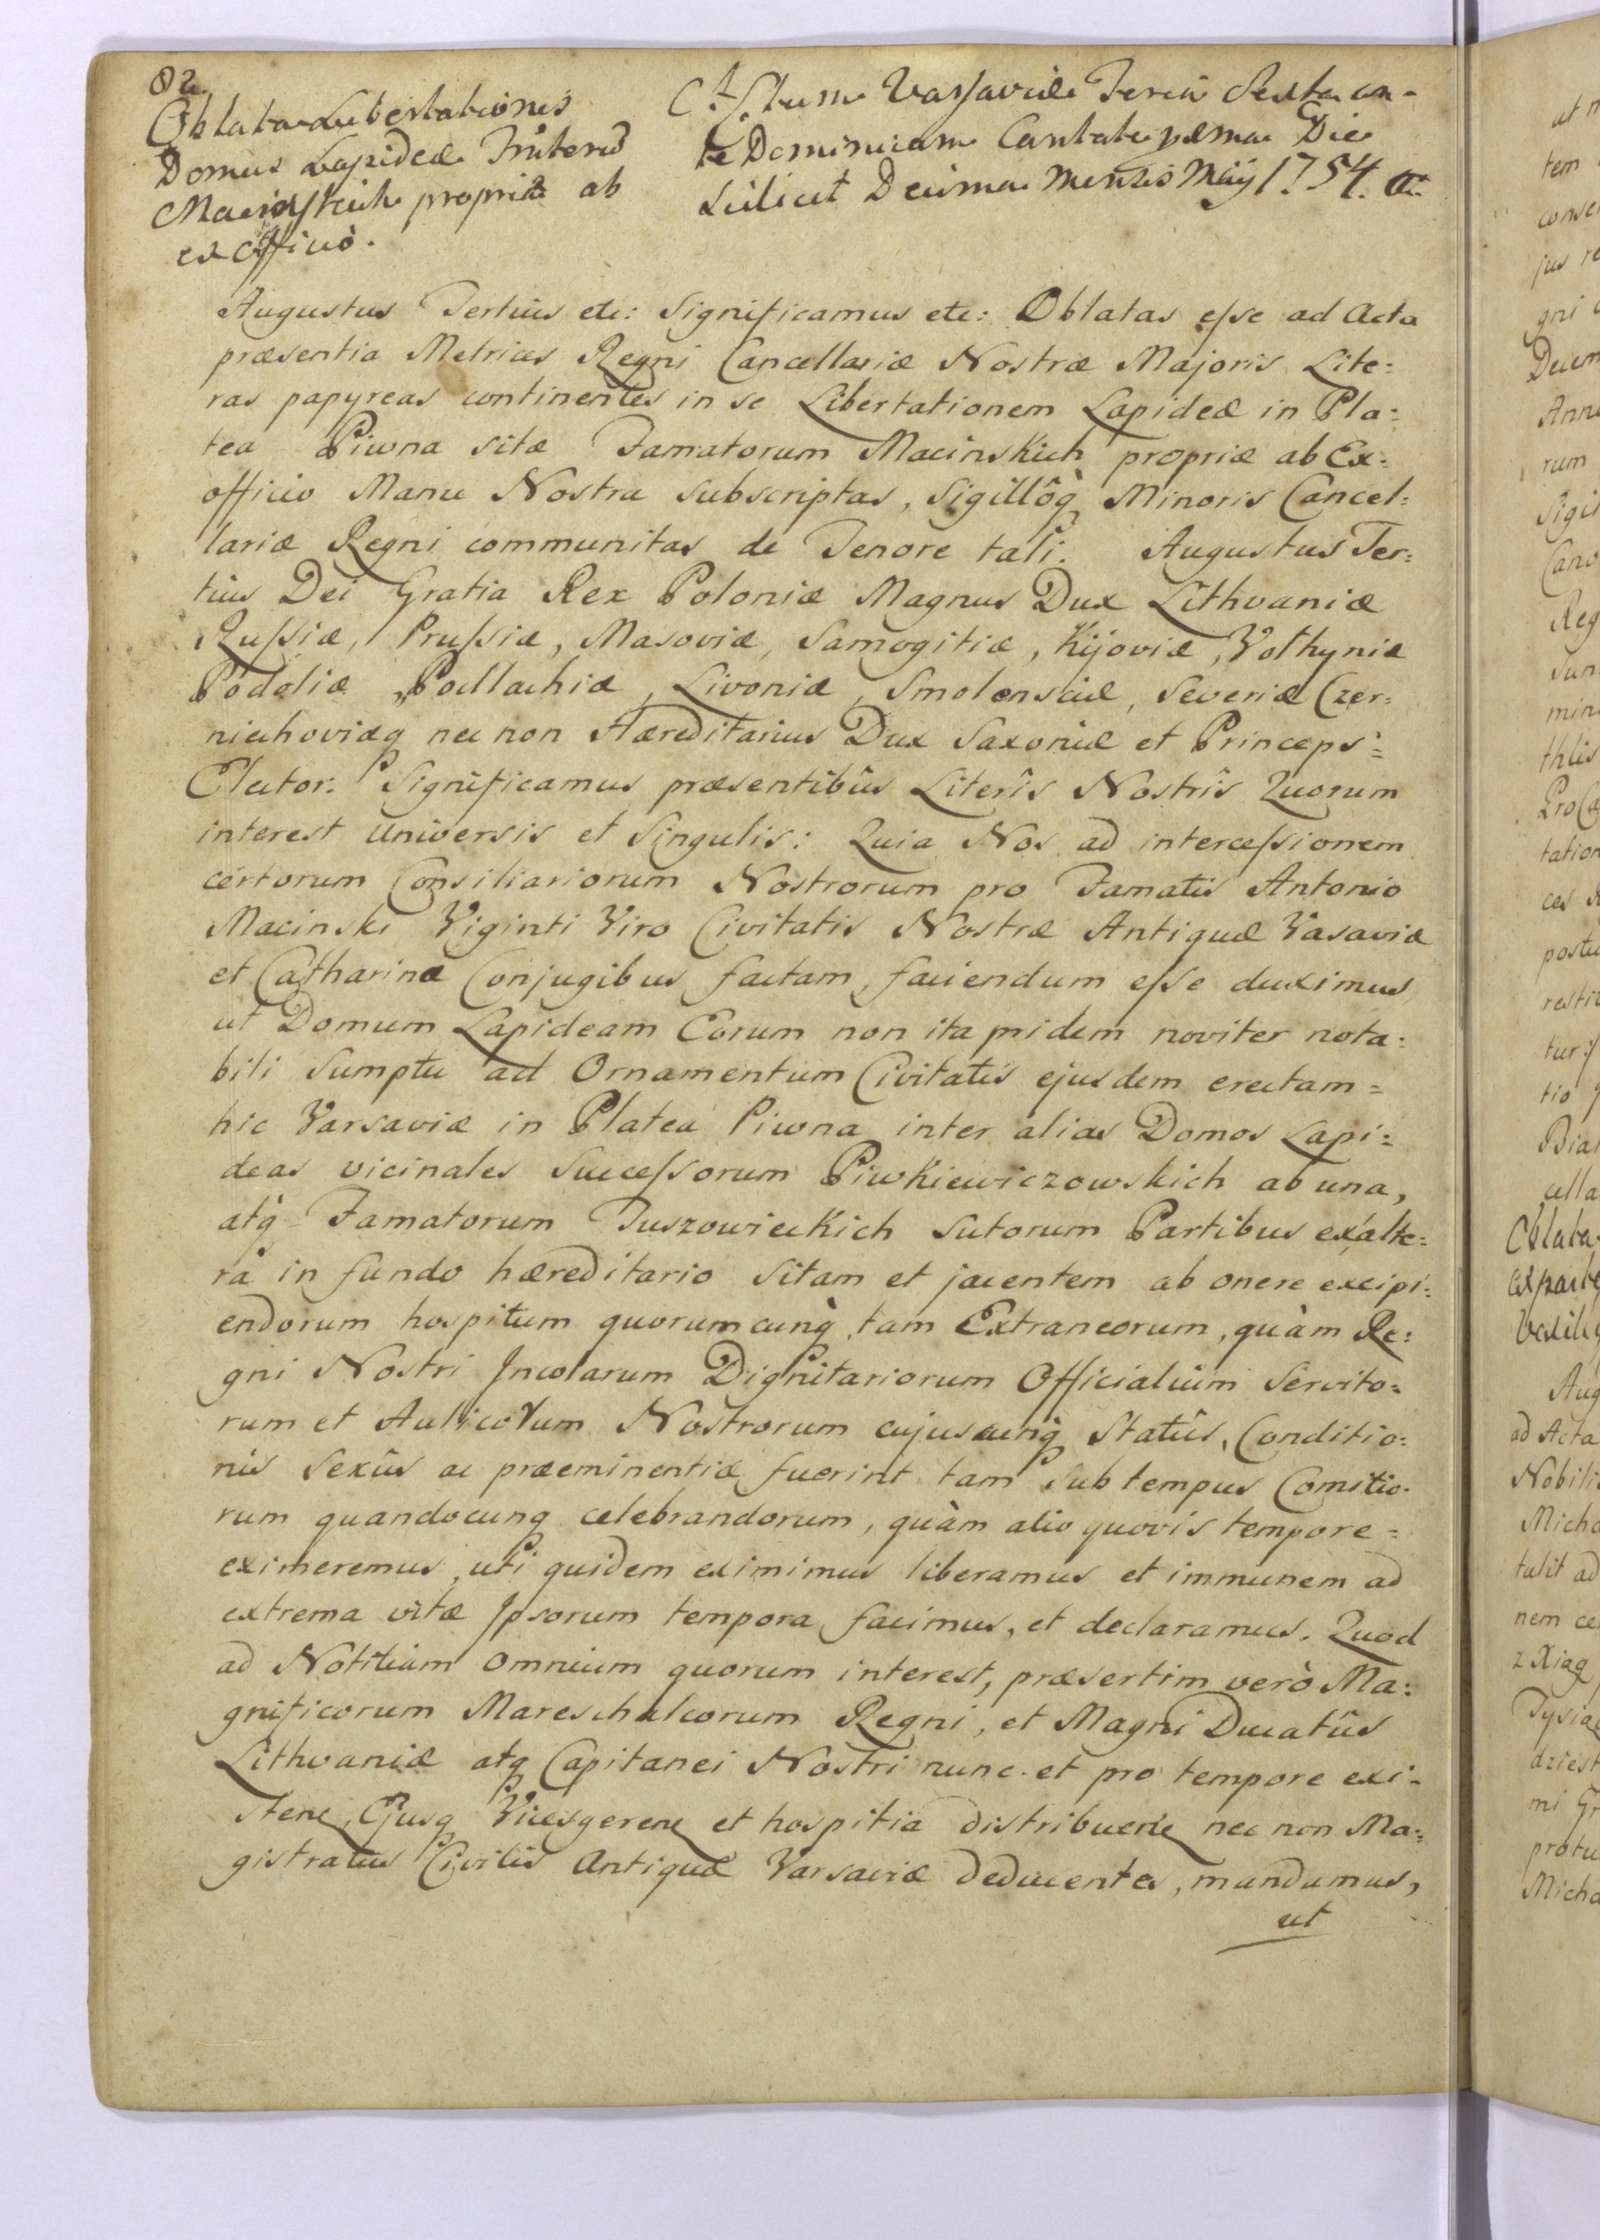 82.
Oblata Libertationis
Domus Lapideæ
Macinskich propriæ ab
ex Officiô.
Actum Varsaviæ Feria Sexta an-
te Dominicam Cantate pxma Die
Scilicet Decima Mensis Maij 1754. A.
Augustus Tertius etc: Significamus etc: Oblatas esse ad Acta
præsentia Metrices Regni Cancellariæ Nostræ Majoris Lite:
ras papyreas continentes in se Libertationem Lapideæ in Pla:
tea Piwna sitæ Famatorum Macinskich propriæ ab Ex:
officio Manu Nostra subscriptas, Sigillôq Minoris Cancel:
lariæ Regni communitas de Tenore tali. Augustus Ter:
tius Dei Gratia Rex Poloniæ Magnus Dux Lithvaniæ
Russiæ, Prussiæ, Masoviæ, Samogitiæ, Kijoviæ, Volhyniæ
Podoliæ, Podlachiæ, Livoniæ, Smolensciæ, Severiæ Czer:
niechoviæq nec non Hæreditarius Dux Saxoniæ et Princeps:
Elector. Significamus præsentibûs Literîs Nostrîs Quorum
interest Universis et Singulis: Quia Nos ad intercessionem
certorum Consiliariorum Nostrorum pro Famatis Antonio
Macinski Viginti Viro Civitatis Nostræ Antiquæ Vasaviæ
et Catharina Conjugibus factam, faciendum esse duximus
ut Domum Lapideam Eorum non ita pridem noviter nota:
bili Sumptu ad Ornamentum Civitatis ejusdem erectam=
hic Varsaviæ in Platea Piwna inter alias Domos Lapi:
deas vicinales Successorum Piwkiewiczowskich ab una,
atq Famatorum Tuszowieckich Sutorum Partibus ex alte:
râ in fundo hæreditario Sitam et jacentem ab onere excipi:
endorum hospitum quorumcunq̀ tam Extraneorum, quàm Re:
gni Nostri Incolarum Dignitariorum Officialium Servito=
rum et Aulicorum Nostrorum cujuscunq̀ Statûs, Conditio:
nis Sexûs ac præeminentiæ fuerint tam Sub tempus Comitio-
rum quandocunq celebrandorum, quàm alio quovis tempore=
eximeremus, uti quidem eximimus liberamus et immunem ad
extrema vitæ Ipsorum tempora facimus, et declaramus. Quod
ad Notitiam omnium quorum interest, præsertim verò Ma:
gnificorum Mareschalcorum Regni, et Magni Ducatûs
Lithvaniæ atq Capitanei Nostri nunc et pro tempore exi-
sten, Ejusq Vicesgeren et hospitia distribuen nec non Ma:
gistratus Civilis Antiquæ Varsaviæ deducentes, mandamus,
ut